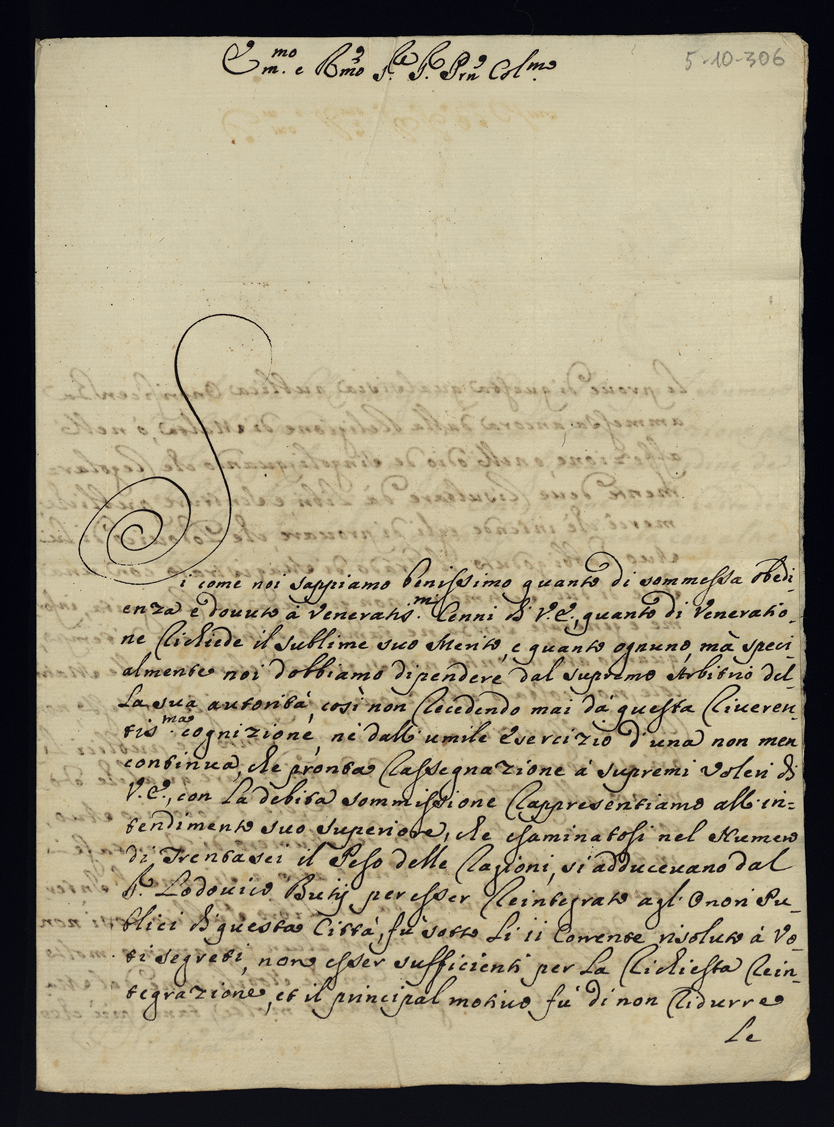 Em.mo e R.mo S.re S. Prn Col.mo
5-10-306
Si come noi sappiamo benissimo quanto di sommessa obedi-
enza è dovuto à Veneratis.mi Cenni di V.E., quanto di Veneratio-
ne Richiede il sublime suo Merito, e quanto ognuno, mà speci-
almente noi dobbiamo dipendere dal supremo Arbitrio del-
la sua autorità, così non Recedendo mai da questa Riveren-
tis.ma cognizione, nè dall'umile Esercizio d'una non men
continua, che pronta Rassegnazione à supremi Voleri di
V.E., con la debita sommissione Rappresentiamo all'in-
tendimento suo superiore, che esaminatosi nel Numero
di Trentasei il Peso delle Ragioni, si adducevano dal
S. Lodovico Butij per esser Reintegrato agl'Onori Pu-
blici di questa Città, fù sotto li 11 Corrente risoluto à Vo-
ti segreti, non esser sufficienti per la Richiesta Rein-
tegrazione, et il principal motivo fù di non Ridurre
le